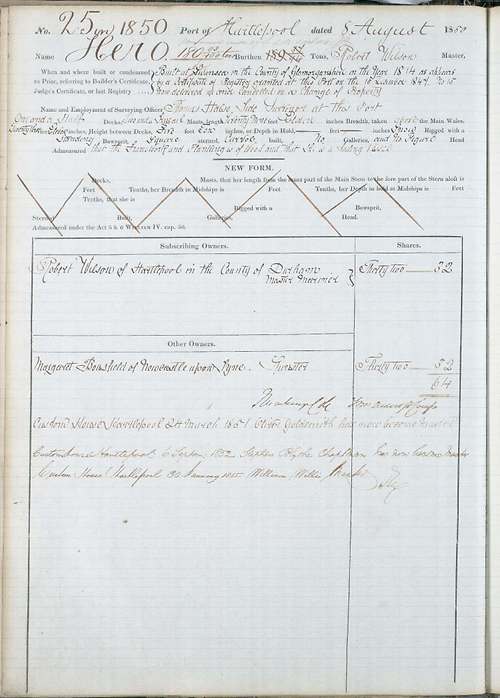 No. 25 in 1850 Port of Hartlepool dated 8 August 1850
Name Hero Burthen Tons, Robert Wilson Master.
When and where built or condemned Built at in the County of Glamorganshire in the Year 1814 as appears
to Prize, referring to Builder's Certificate, by a Certificate of Registry granted at this Port on the 1847. No 15
Judge's Certificate, or last Registry now delivered up and cancelled on a Change of Property
Name and Employment of Surveying Officer Thomas Tide Surveyor at this Port
One and a Half Decks, Masts, length Feet Tenths, Breadth taken above the Main Wales.
Feet Tenths, Height between Decks, Five Feet Ten inches, or Depth in Hold, Feet inches Rigged with a
Standing Bowsprit, Square sterned, Carvel built, No Galleries, and No Figure Head
Admeasured that the Framework and Planking is of Wood and that she is a Sailing Vessel
NEW FORM.
Decks, Masts, that her length from the inner part of the Main Stem to the fore part of the Stern aloft is
Feet Tenths, her Breadth in Midships is Feet Tenths, her Depth in hold at Midships is Feet
Tenths, that she is Rigged with a Bowsprit,
Sterned Built, Galleries, Head.
Admeasured under the Act 5 & 6 WILLIAM IV. cap. 56.
Subscribing Owners. Shares.
Robert Wilson of Hartlepool in the County of Durham Thirty two 32
Master Mariner
Other Owners.
Margaret Bousfield of Newcastle upon Tyne Spinster Thirty two 32
64
Custom House Hartlepool 24 March 1851 Oliver Goldsmith has now become Master
Custom house Hartlepool 6 1852 Stephen Clarke Chapman has now become Master
Custom House Hartlepool January William Master